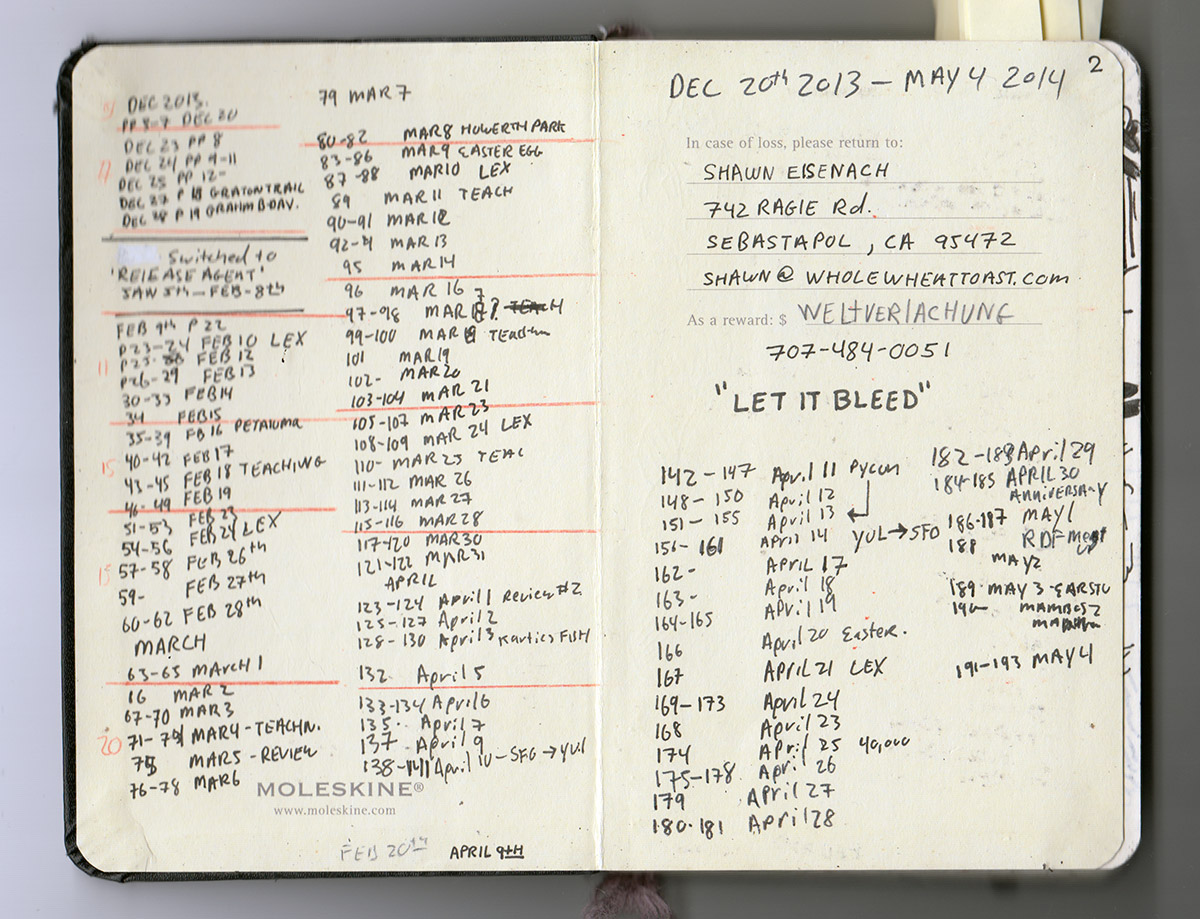 9
DEC 2013.
PP 3-7 DEC 20
DEC 23 PP 8
17
DEC 24 PP 9-11
DEC 25 PP 12-
DEC 27 P 18 GRATON TRAIL
DEC 28 P 19 GRAHM B DAY.
Switched to
'RELEASE AGENT'
JAN 5th - FEB-8th
FEB 9th P 22
P23-24 FEB 10 LEX
FEB 12
11
P26-29 FEB 13
30-33 FEB14
34 FEB15
35-39 FB 16 PETALUMA
40-42 FEB 17
15
43-45 FEB 18 TEACHING
46-49 FEB 19
51-53 FEB 23
54-56 FEB 24 LEX
15
57-58 FEB 26th
59- FEB 27th
60-62 FEB 28th
MARCH
63-65 MARCH 1
16 MAR 2
67-70 MAR3
20
71-74 MAR4-TEACHN.
75 MAR5 - REVIEW
76-78 MAR6
MOLESKINE®
www.moleskine.com
FEB 20th
APRIL 9TH
79 MAR 7
80-82 MAR8 HOWERTH PARK
83-86 MAR9 EASTER EGG
87-88 MAR10 LEX
89 MAR 11 TEACH
90-91 MAR 12
92-4 MAR 13
95 MAR 14
96 MAR 16
97-98 MAR 17? TEACH
99-100 MAR 18
101 MAR19
102- MAR20
103-104 MAR 21
105-107 MAR 23
108-109 MAR 24 LEX
110- MAR 25 TEAC
111-112 MAR 26
113-114 MAR 27
115-116 MAR 28
117-120 MAR30
121-122 MAR31
APRIL
123-124 April 1 Review #2
125-127 April 2
128-130 April 3
132 April 5
133-134 April 6
135. April 7
137 April 9
138-141 April 10-SFO→YUL
2
DEC 20th 2013 - MAY 4 2014
In case of loss, please return to:
SHAWN EISENACH
742 RAGIE Rd.
SEBASTAPOL, CA 95472
SHAWN@WHOLEWHEATTOAST.com
As a reward: $ WELTVERLACHUNG
707-484-0051
"LET IT BLEED"
142-147 April 11 Pycon
148-150 April 12
151-155 April 13
156-161 April 14 YUL→SFO
162- APRIL 17
163- April 18
164-165 April 19
166 April 20 Easter.
167 APRIL 21 LEX
169-173 April 24
168 April 23
174 April 25 40,000
175-178 April 26
179 April 27
180-181 April 28
182-183 April 29
184-185 APRIL 30
ANNIVERSARY
186-187 MAY 1
188 RDF
MAY2
189 MAY 3
190
191-193 MAY 4